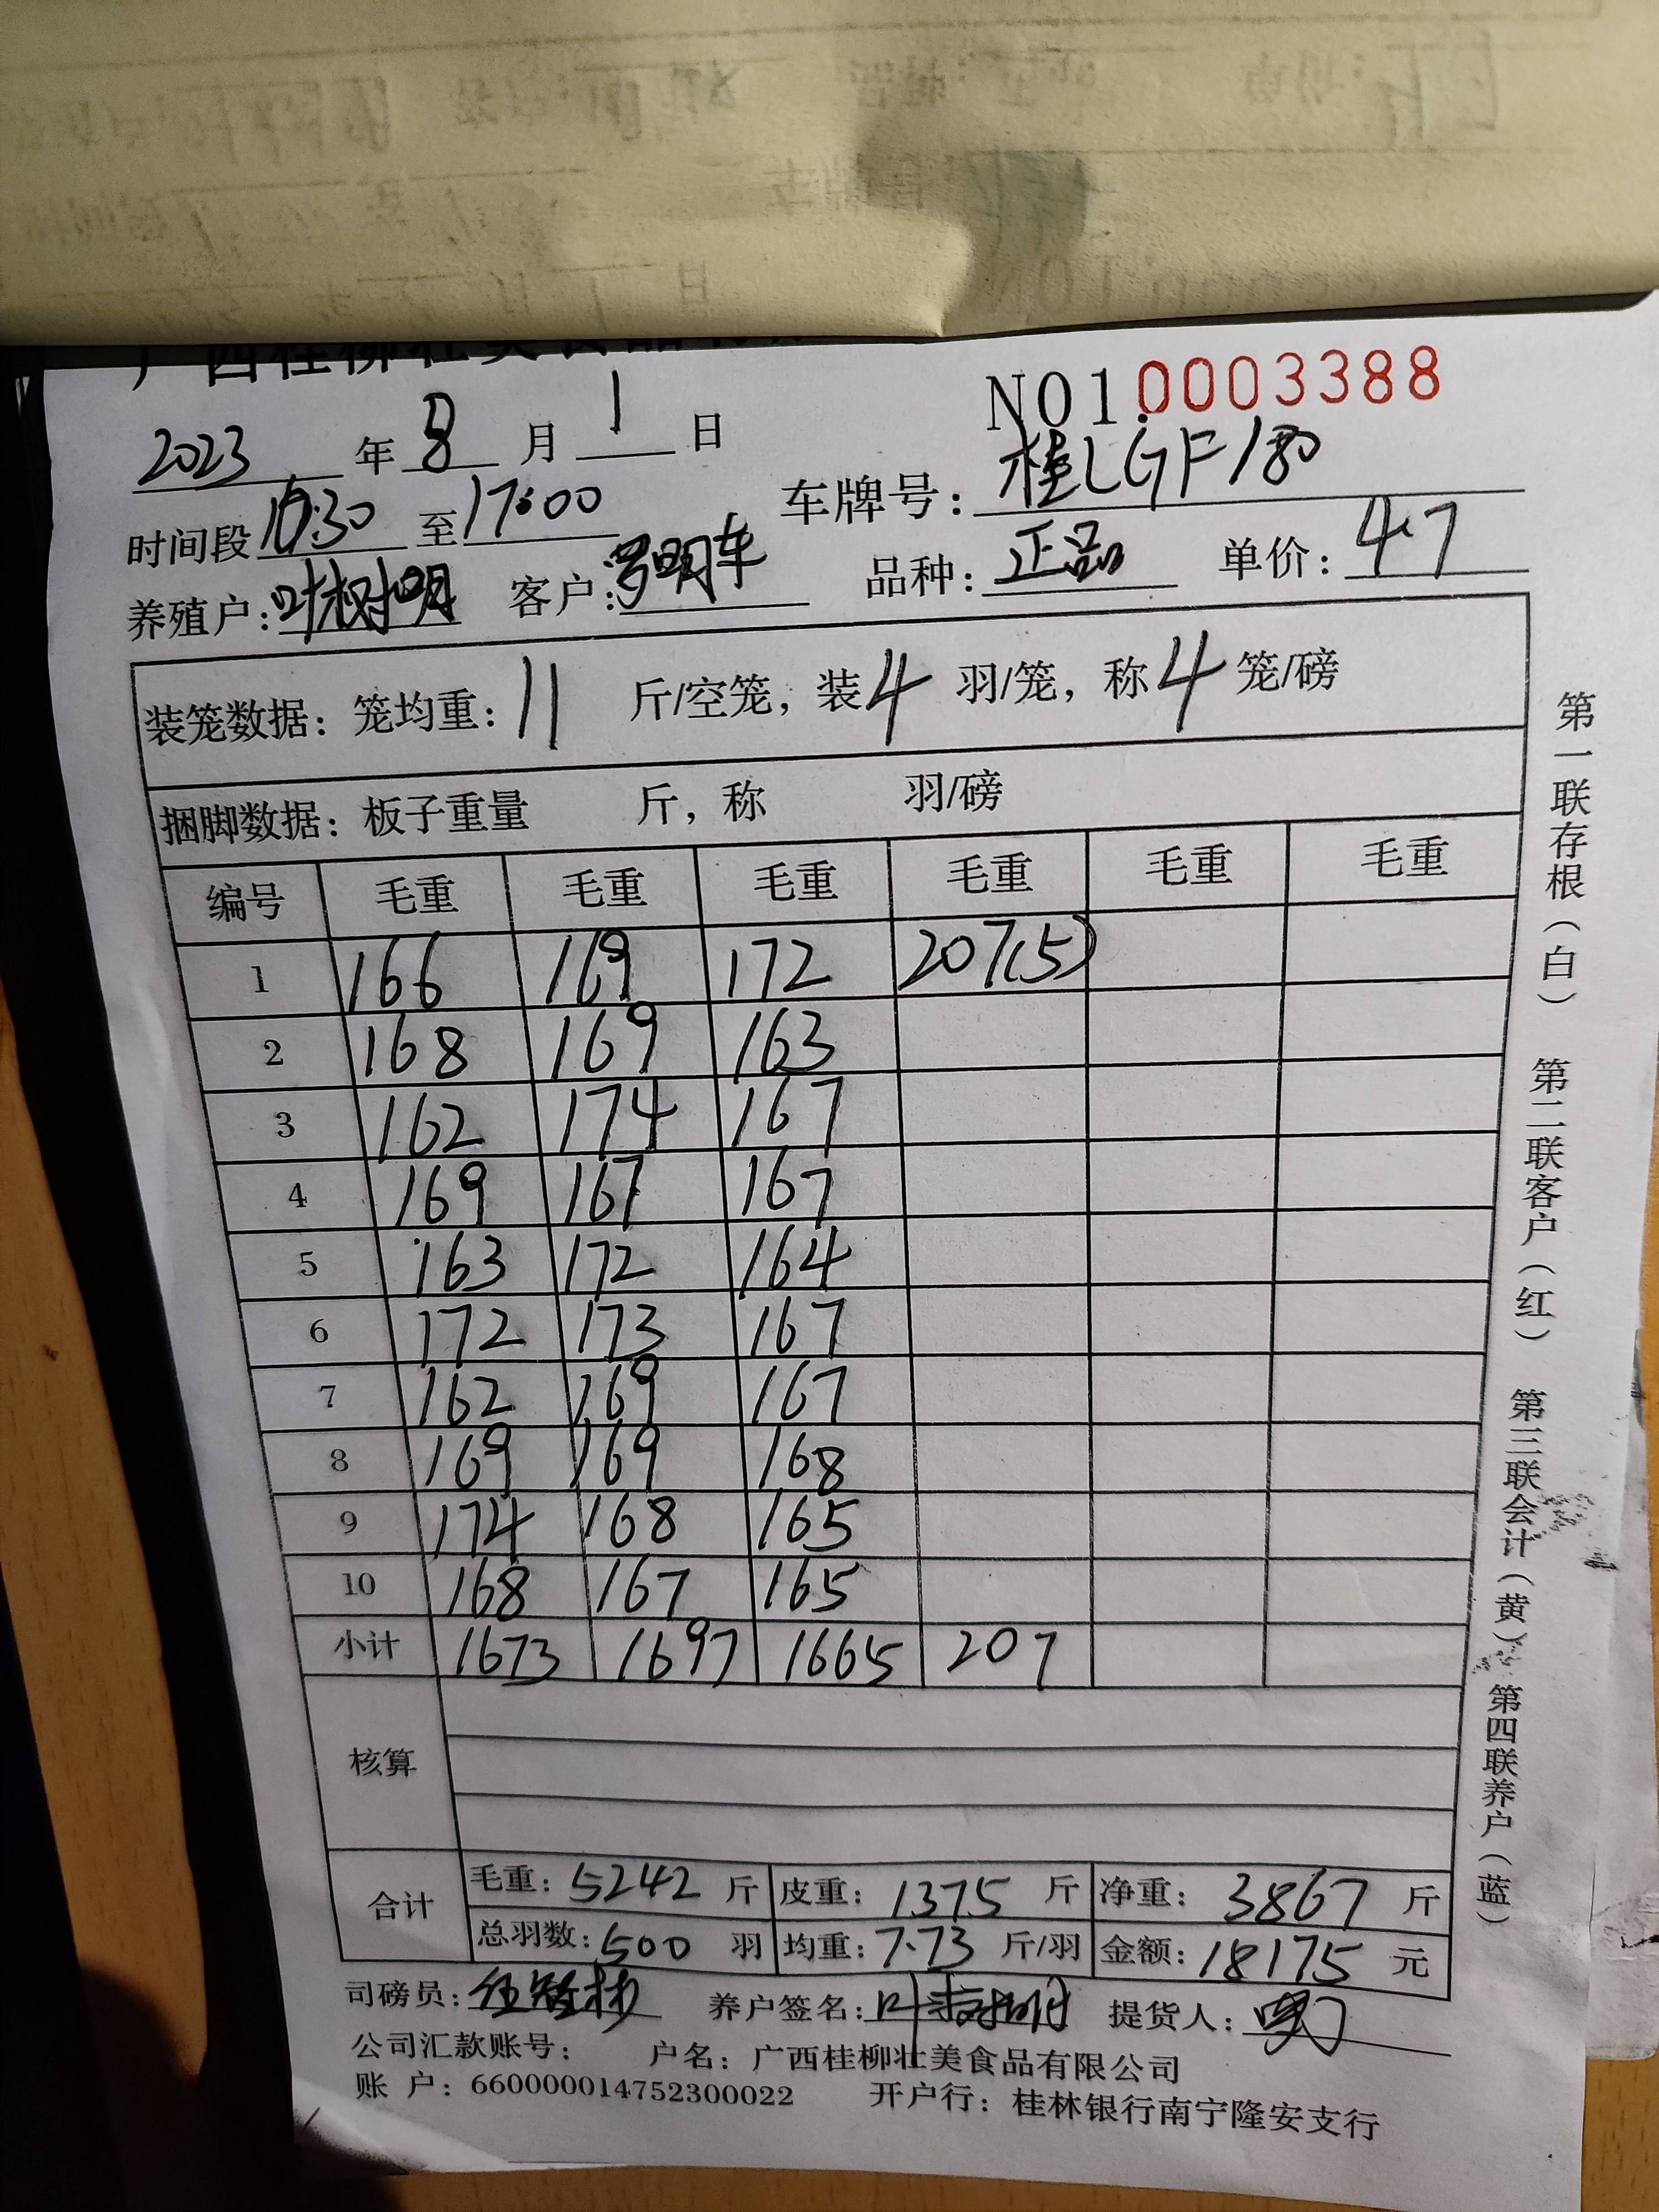 广西桂柳壮美食品有限
NO1.0003388
2023年8月1日
时间段16:30至17:00 车牌号：桂LGF180
养殖户：叶树明 客户：罗明车 品种：正品 单价：4.7
装笼数据：笼均重：11斤/空笼，装4羽/笼，称4笼/磅
捆脚数据：板子重量 斤，称 羽/磅
编号 毛重 毛重 毛重 毛重 毛重 毛重
1 166 169 172 207(5)
2 168 169 163
3 162 174 167
4 169 167 167
5 163 172 164
6 172 173 167
7 162 169 167
8 169 169 168
9 174 168 165
10 168 167 165
小计 1673 1697 1665 207
核算
合计
毛重：5242斤 皮重：1375斤 净重：3867斤
总羽数：500羽 均重：7.73斤/羽 金额：18175元
司磅员： 养户签名：叶树明 提货人：
公司汇款账号： 户名：广西桂柳壮美食品有限公司
账 户：660000014752300022 开户行：桂林银行南宁隆安支行
第一联存根（白） 第二联客户（红） 第三联会计（黄） 第四联养户（蓝）